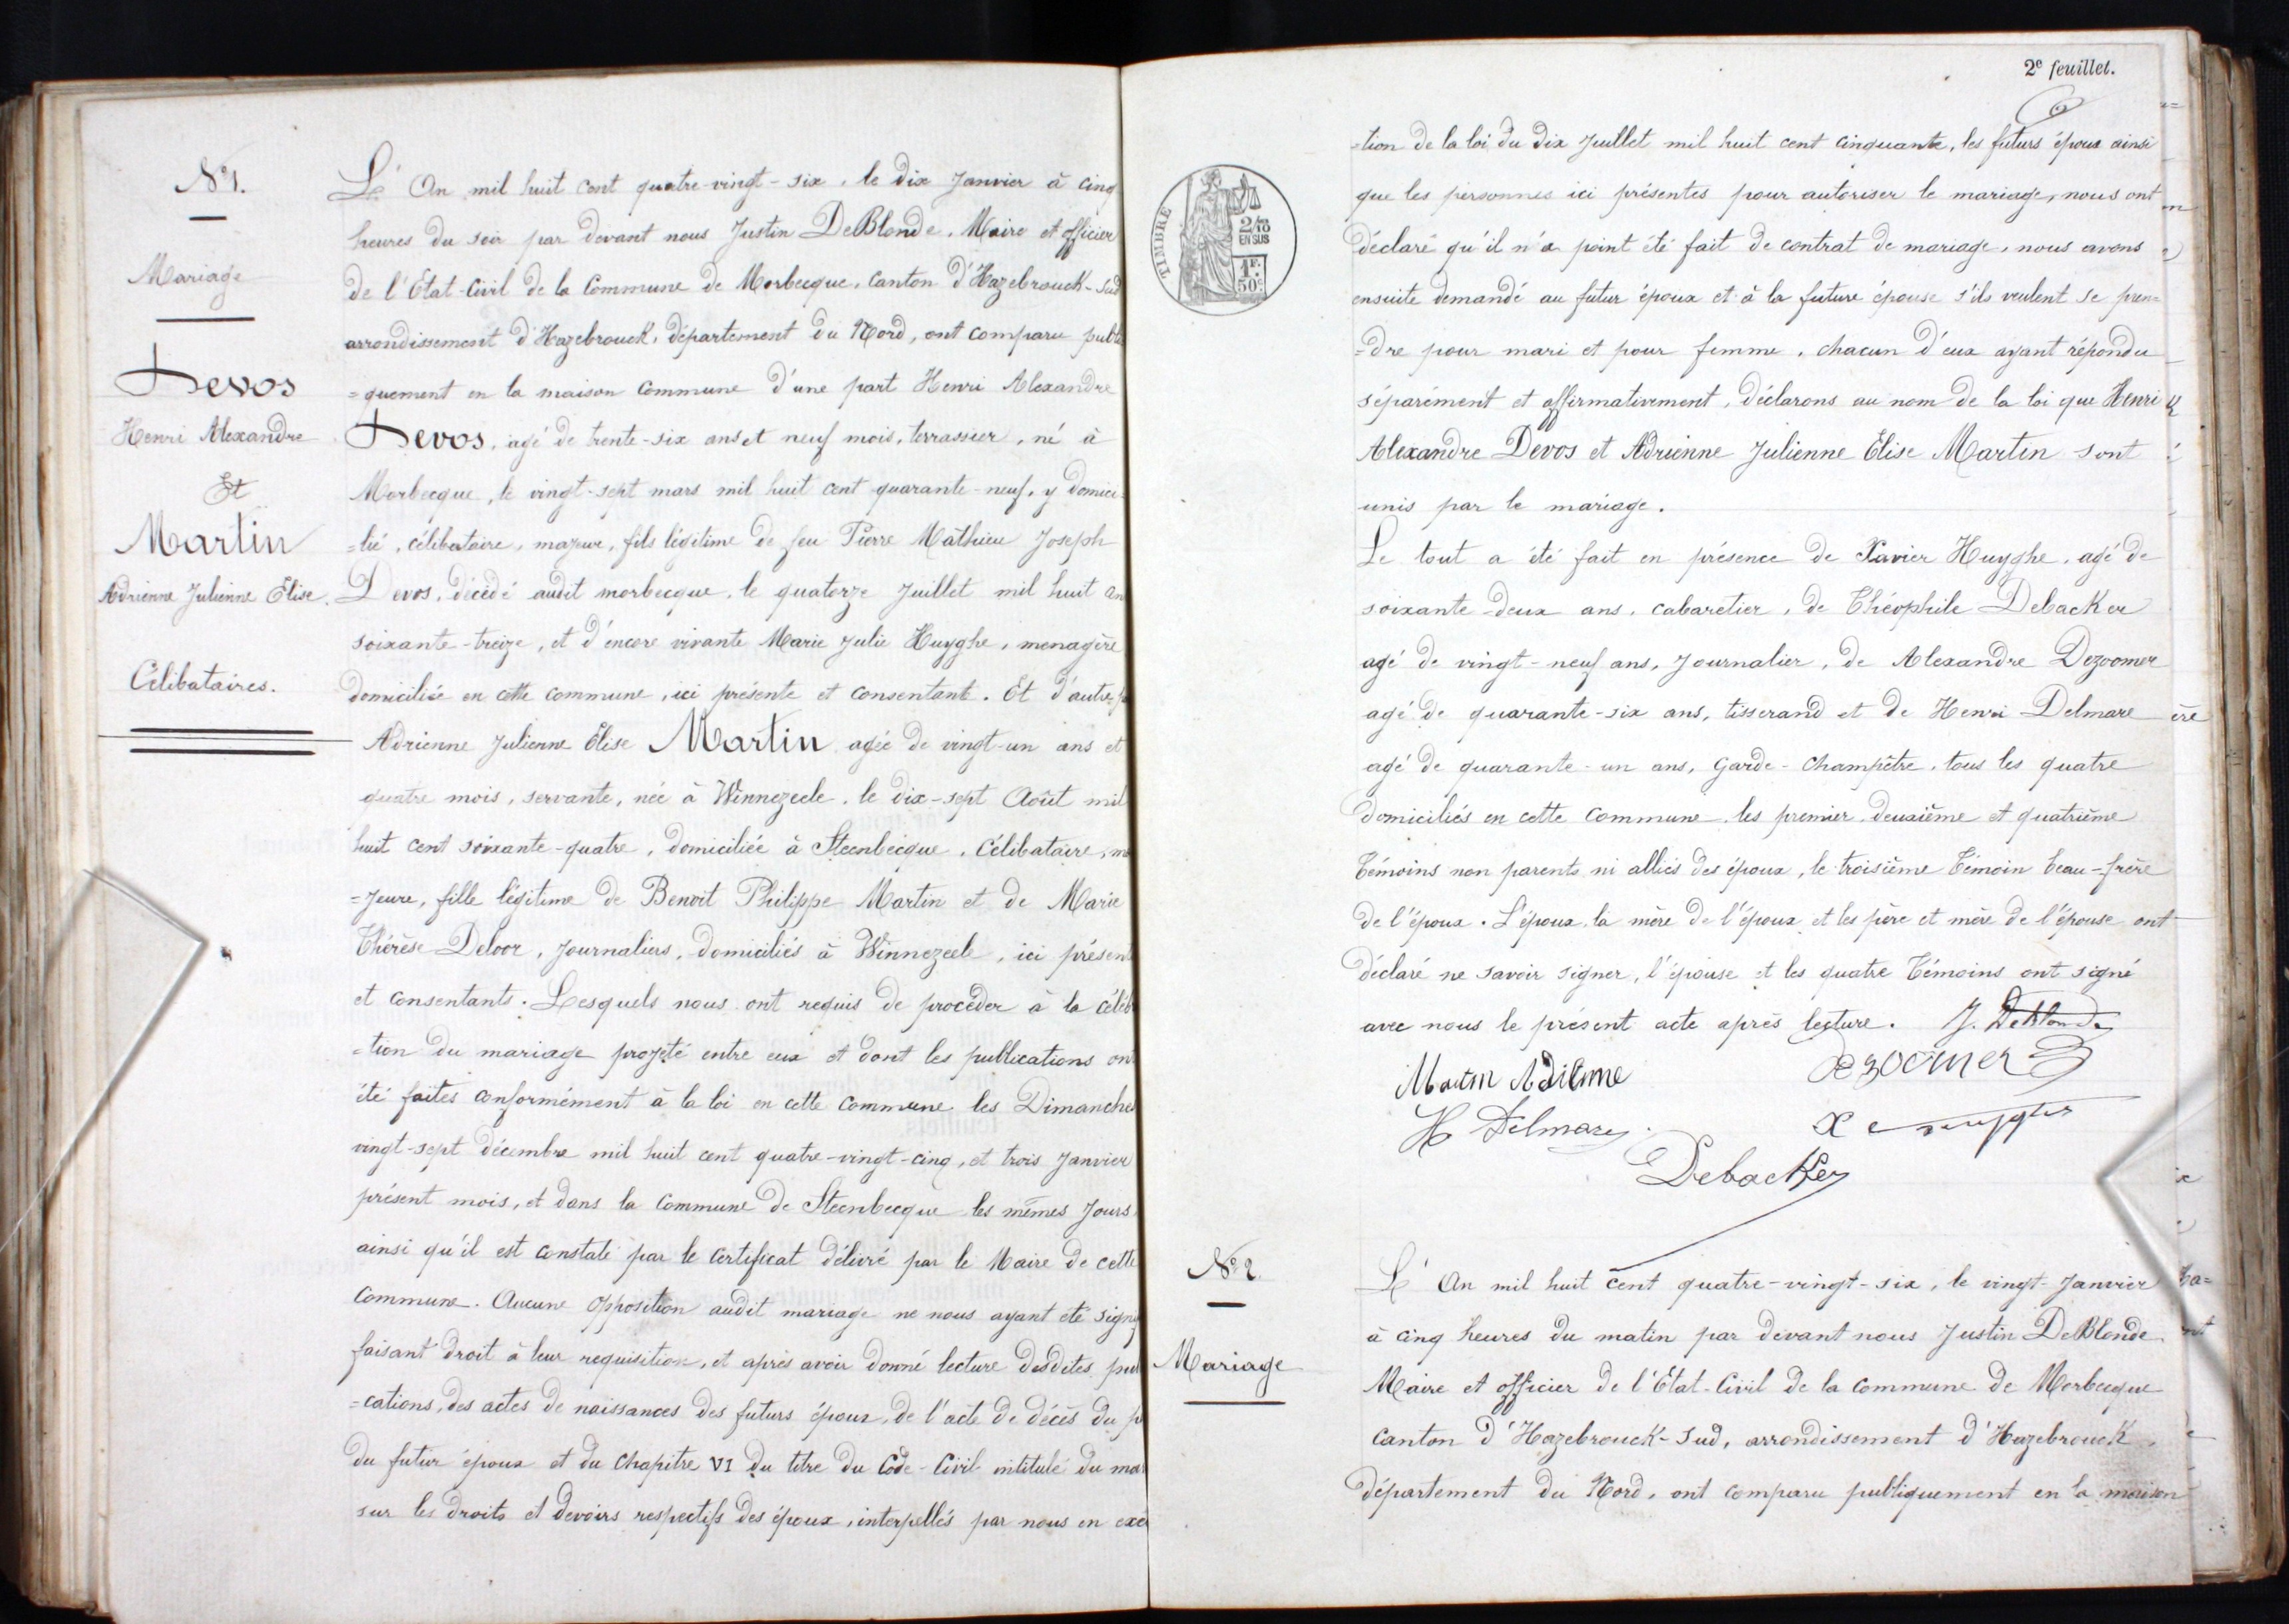 N° 1.
Mariage
Devos
Henri Alexandre
Et
Martin
Adrienne Julienne Elise.
Célibataires.
L'An mil huit cent quatre-vingt-six, le dix Janvier à cinq
heures du soir par devant nous Justin DeBlonde, Maire et officier
de l'Etat-Civil de la Commune de Morbecque, Canton d'Hazebrouck-Sud
arrondissement d'Hazebrouck, département du Nord, ont comparu publi
=quement en la maison commune d'une part Henri Alexandre
Devos, agé de trente-six ans et neuf mois, terrassier, né à
Morbecque, le vingt-sept mars mil huit cent quarante-neuf, y domici=
=lié, célibataire, majeur, fils légitime de feu Pierre Mathieu Joseph
Devos, décédé audit morbecque, le quatorze Juillet mil huit
soixante-treize, et d'encore vivante Marie Julie Huyghe, menagère
domiciliée en cette commune, ici présente et consentante. Et d'autre
Adrienne Julienne Elise Martin agée de vingt-un ans et
quatre mois, servante, née à Winnezeele, le dix-sept Août mil
huit cent soixante-quatre, domiciliée à Steenbecque, Célibataire, ma
=jeure, fille légitime de Benoit Philippe Martin et de Marie
Thérèse Deloor, Journaliers, domiciliés à Winnezeele, ici présent
et consentants. Lesquels nous ont requis de procéder à la céléb
=tion du mariage projeté entre eux et dont les publications ont
été faites conformément à la loi en cette commune les Dimanches
vingt-sept décembre mil huit cent quatre-vingt-cinq, et trois Janvier
présent mois, et dans la commune de Steenbecque les mêmes Jours
ainsi qu'il est constaté par le certificat délivré par le Maire de cette
Commune. Aucune opposition audit mariage ne nous ayant été signi
faisant droit à leur requisition, et après avoir donné lecture desdites pub
=cations, des actes de naissances des futurs époux, de l'acte de décès du p
du futur époux et du Chapitre VI du titre du Code-Civil intitulé du mar
sur les droits et devoirs respectifs des époux, interpellés par nous en exé
2e feuillet.
TIMBRE
2/10
EN SUS
1F.
50c.
=tion de la loi du dix Juillet mil huit cent cinquante, les futurs époux ainsi
que les personnes ici présentes pour autoriser le mariage, nous ont
déclaré qu'il n'a point été fait de contrat de mariage, nous avons
ensuite demandé au futur époux et à la future épouse s'ils veulent se pren=
=dre pour mari et pour femme, chacun d'eux ayant répondu
séparément et affirmativement, déclarons au nom de la loi que Henri
Alexandre Devos et Adrienne Julienne Elise Martin sont
unis par le mariage.
Le tout a été fait en présence de Xavier Huyghe, agé de
soixante-deux ans, cabaretier, de Théophile Debacker
agé de vingt-neuf ans, Journalier, de Alexandre Dezoomer
agé de quarante-six ans, tisserand et de Henri Delmare
agé de quarante-un ans, Garde-Champêtre, tous les quatre
domiciliés en cette commune, les premier, deuxième et quatrième
témoins non parents ni alliés des époux, le troisième témoin beau-frère
de l'époux. L'époux, la mère de l'époux et les père et mère de l'épouse ont
déclaré ne savoir signer, l'épouse et les quatre témoins ont signé
avec nous le présent acte après lecture. J. Deblonde
Martin Adrienne Dezoomer
H Delmare
Debacker
N° 2.
Mariage
L'An mil huit cent quatre-vingt-six, le vingt-Janvier
à cinq heures du matin par devant nous Justin DeBlonde
Maire et officier de l'Etat-Civil de la commune de Morbecque
canton d'Hazebrouck-Sud, arrondissement d'Hazebrouck,
département du Nord, ont comparu publiquement en la maison